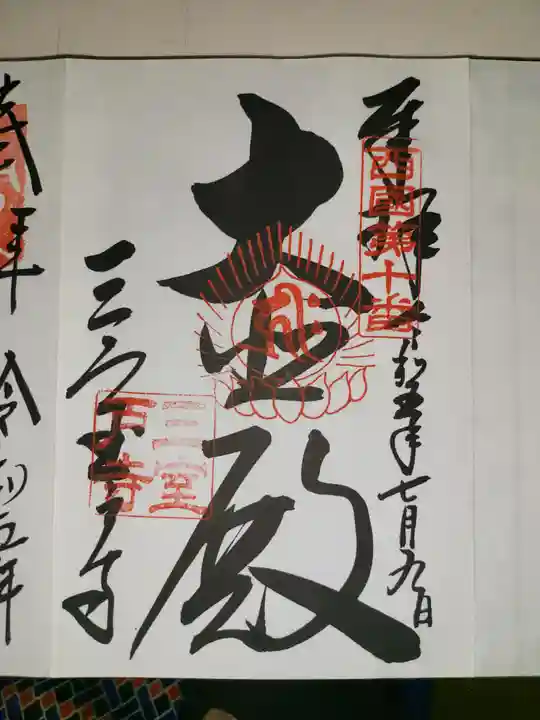 奉拝
西國第十番
令和五年七月九日
大悲殿
三室戸寺
三室
戸寺
年
令和五年